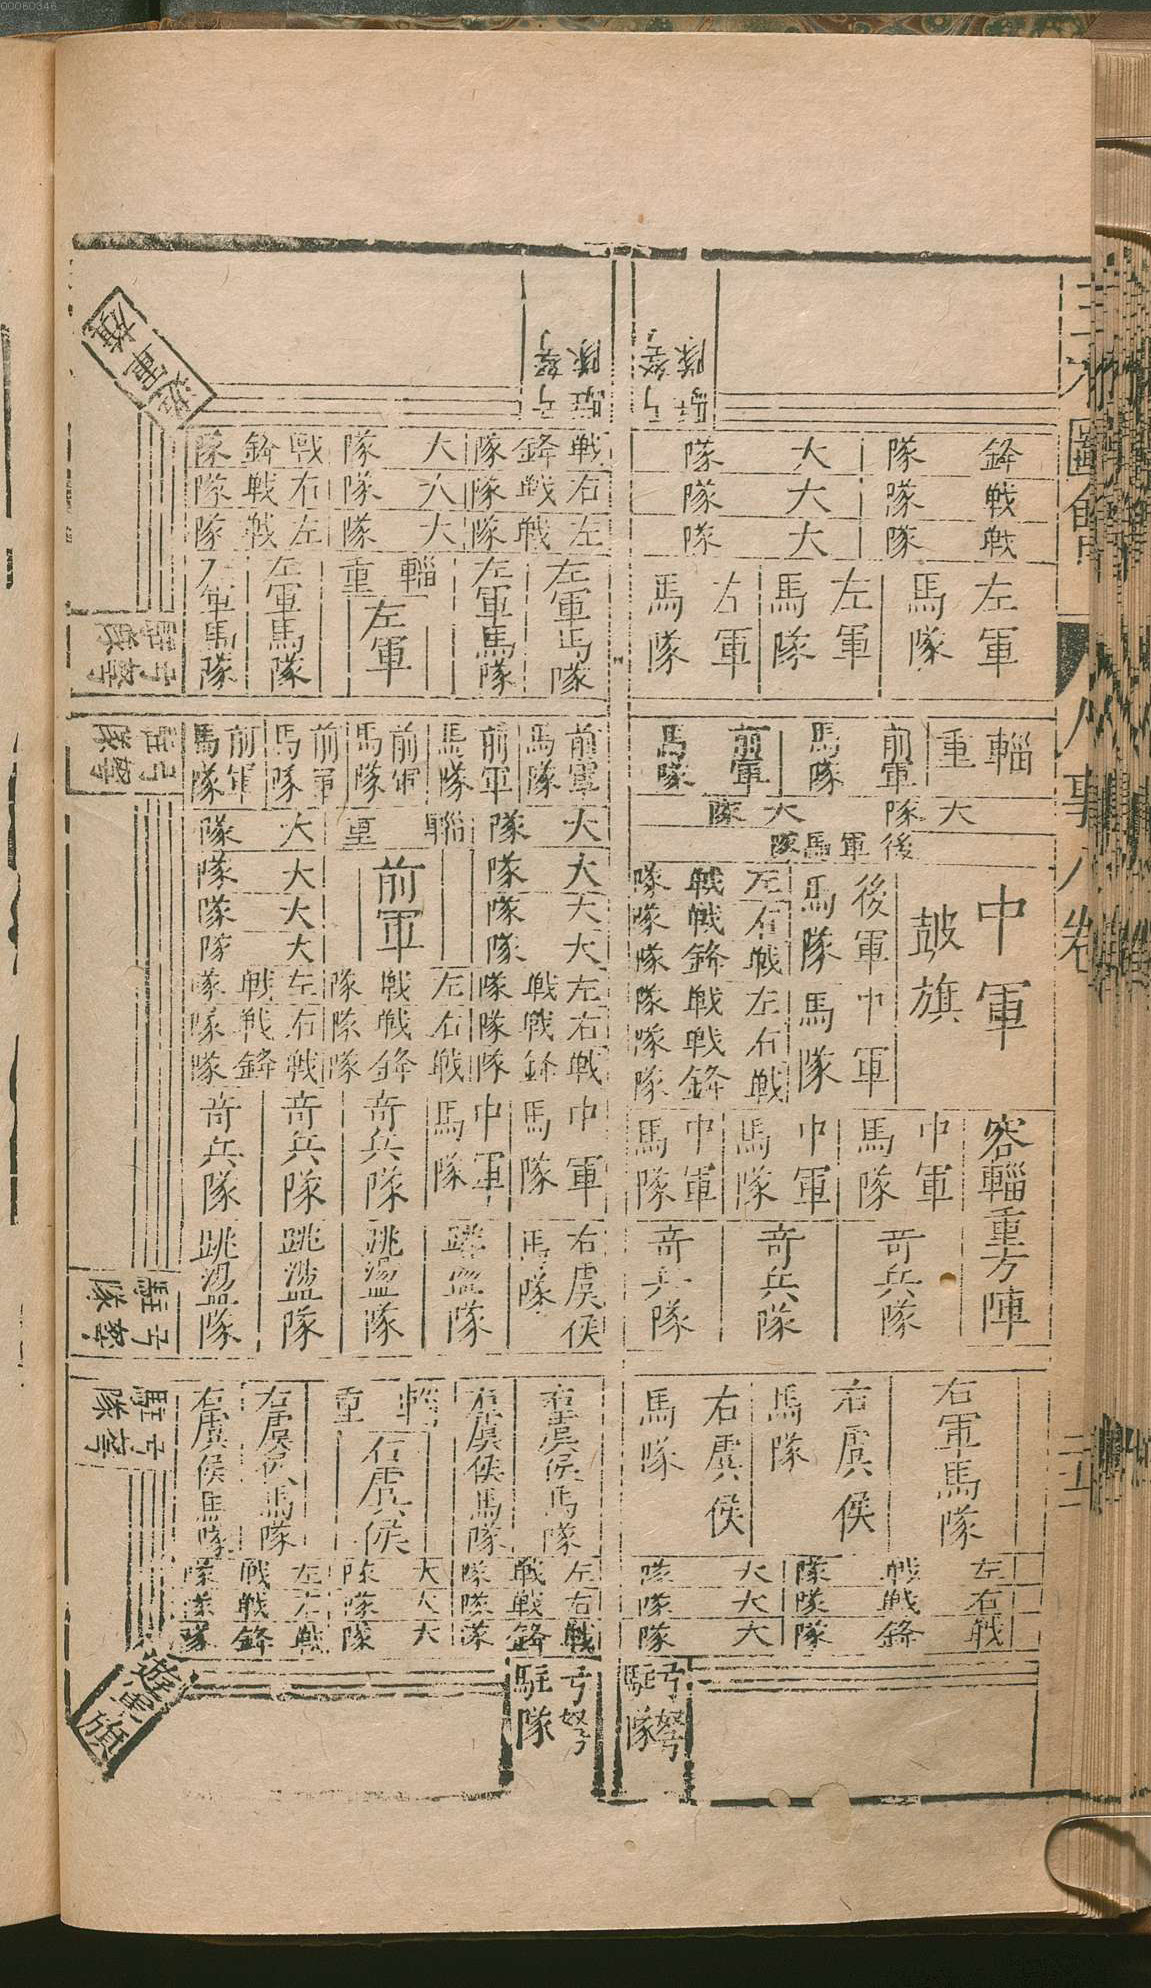 00060346
三才圖會
人事八卷
弩弓駐隊
弩弓駐隊
鋒戰隊
大隊
戰隊
大隊
戰隊
大隊
左軍馬隊
左軍馬隊
右軍馬隊
輜重
前軍馬隊
前軍馬隊
大隊
大隊
後軍馬隊
中軍
皷旗
後軍馬隊
中軍馬隊
左戰隊
右戰隊
戰鋒隊
左戰隊
右戰隊
戰鋒隊
容輜重方陣
中軍馬隊
中軍馬隊
中軍馬隊
竒兵隊
竒兵隊
竒兵隊
右軍馬隊
右虞侯馬隊
右虞侯馬隊
左戰隊
大隊
右戰隊
大隊
戰鋒隊
大隊
弓弩駐隊
戰鋒隊
大隊
戰鋒隊
右戰隊
大隊
右戰隊
左戰隊
大隊
左戰隊
左軍馬隊
左軍馬隊
輜重
左軍
左軍馬隊
左軍馬隊
弓弩駐隊
前軍馬隊
前軍馬隊
前軍馬隊
前軍馬隊
前軍馬隊
弓弩駐隊
大隊
輜重
大隊
大隊
前軍
大隊
大隊
大隊
大隊
大隊
左戰隊
左戰隊
左戰隊
右戰隊
右戰隊
右戰隊
戰鋒隊
戰鋒隊
戰鋒隊
中軍馬隊
中軍馬隊
竒兵隊
竒兵隊
竒兵隊
右虞侯馬隊
跳盪隊
跳盪隊
跳盪隊
跳盪隊
弓弩駐隊
右虞侯馬隊
右虞侯馬隊
輜重
右虞侯
右虞侯馬隊
右虞侯馬隊
弓弩駐隊
左戰隊
大隊
左戰隊
右戰隊
大隊
戰隊
戰鋒隊
大隊
戰鋒隊
弓弩駐隊
遊軍旗
遊旗